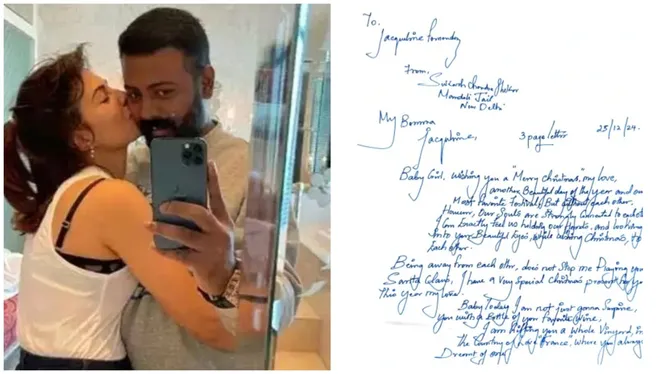 To,
Jacqueline Fernandez
From,
Sukash Chandra Shekar
Mandoli Jail
New Delhi
My Bomma
Jacqueline,
3 page letter
25/12/24.
Baby Girl, Wishing you a "Merry Christmas", my love,
another Beautiful day of the year and our
Most Favorite Festivals, But without each other.
However, Our Souls are Strongly Connected to each
I can Exactly feel us holding our Hands, and looking
into your Beautiful Eyes, while wishing Christmas, to
Each other.
Being away from each other, does not Stop me Playing your
Santa Claus, I have a Very Special Christmas present for you
This year my love.
Baby Today I am not just gonna Surprise,
you with a Bottle of your Favorite Wine,
I am Gifting you a Whole Vinyard, in
the Country of Love "France", where you always
Dreamt of